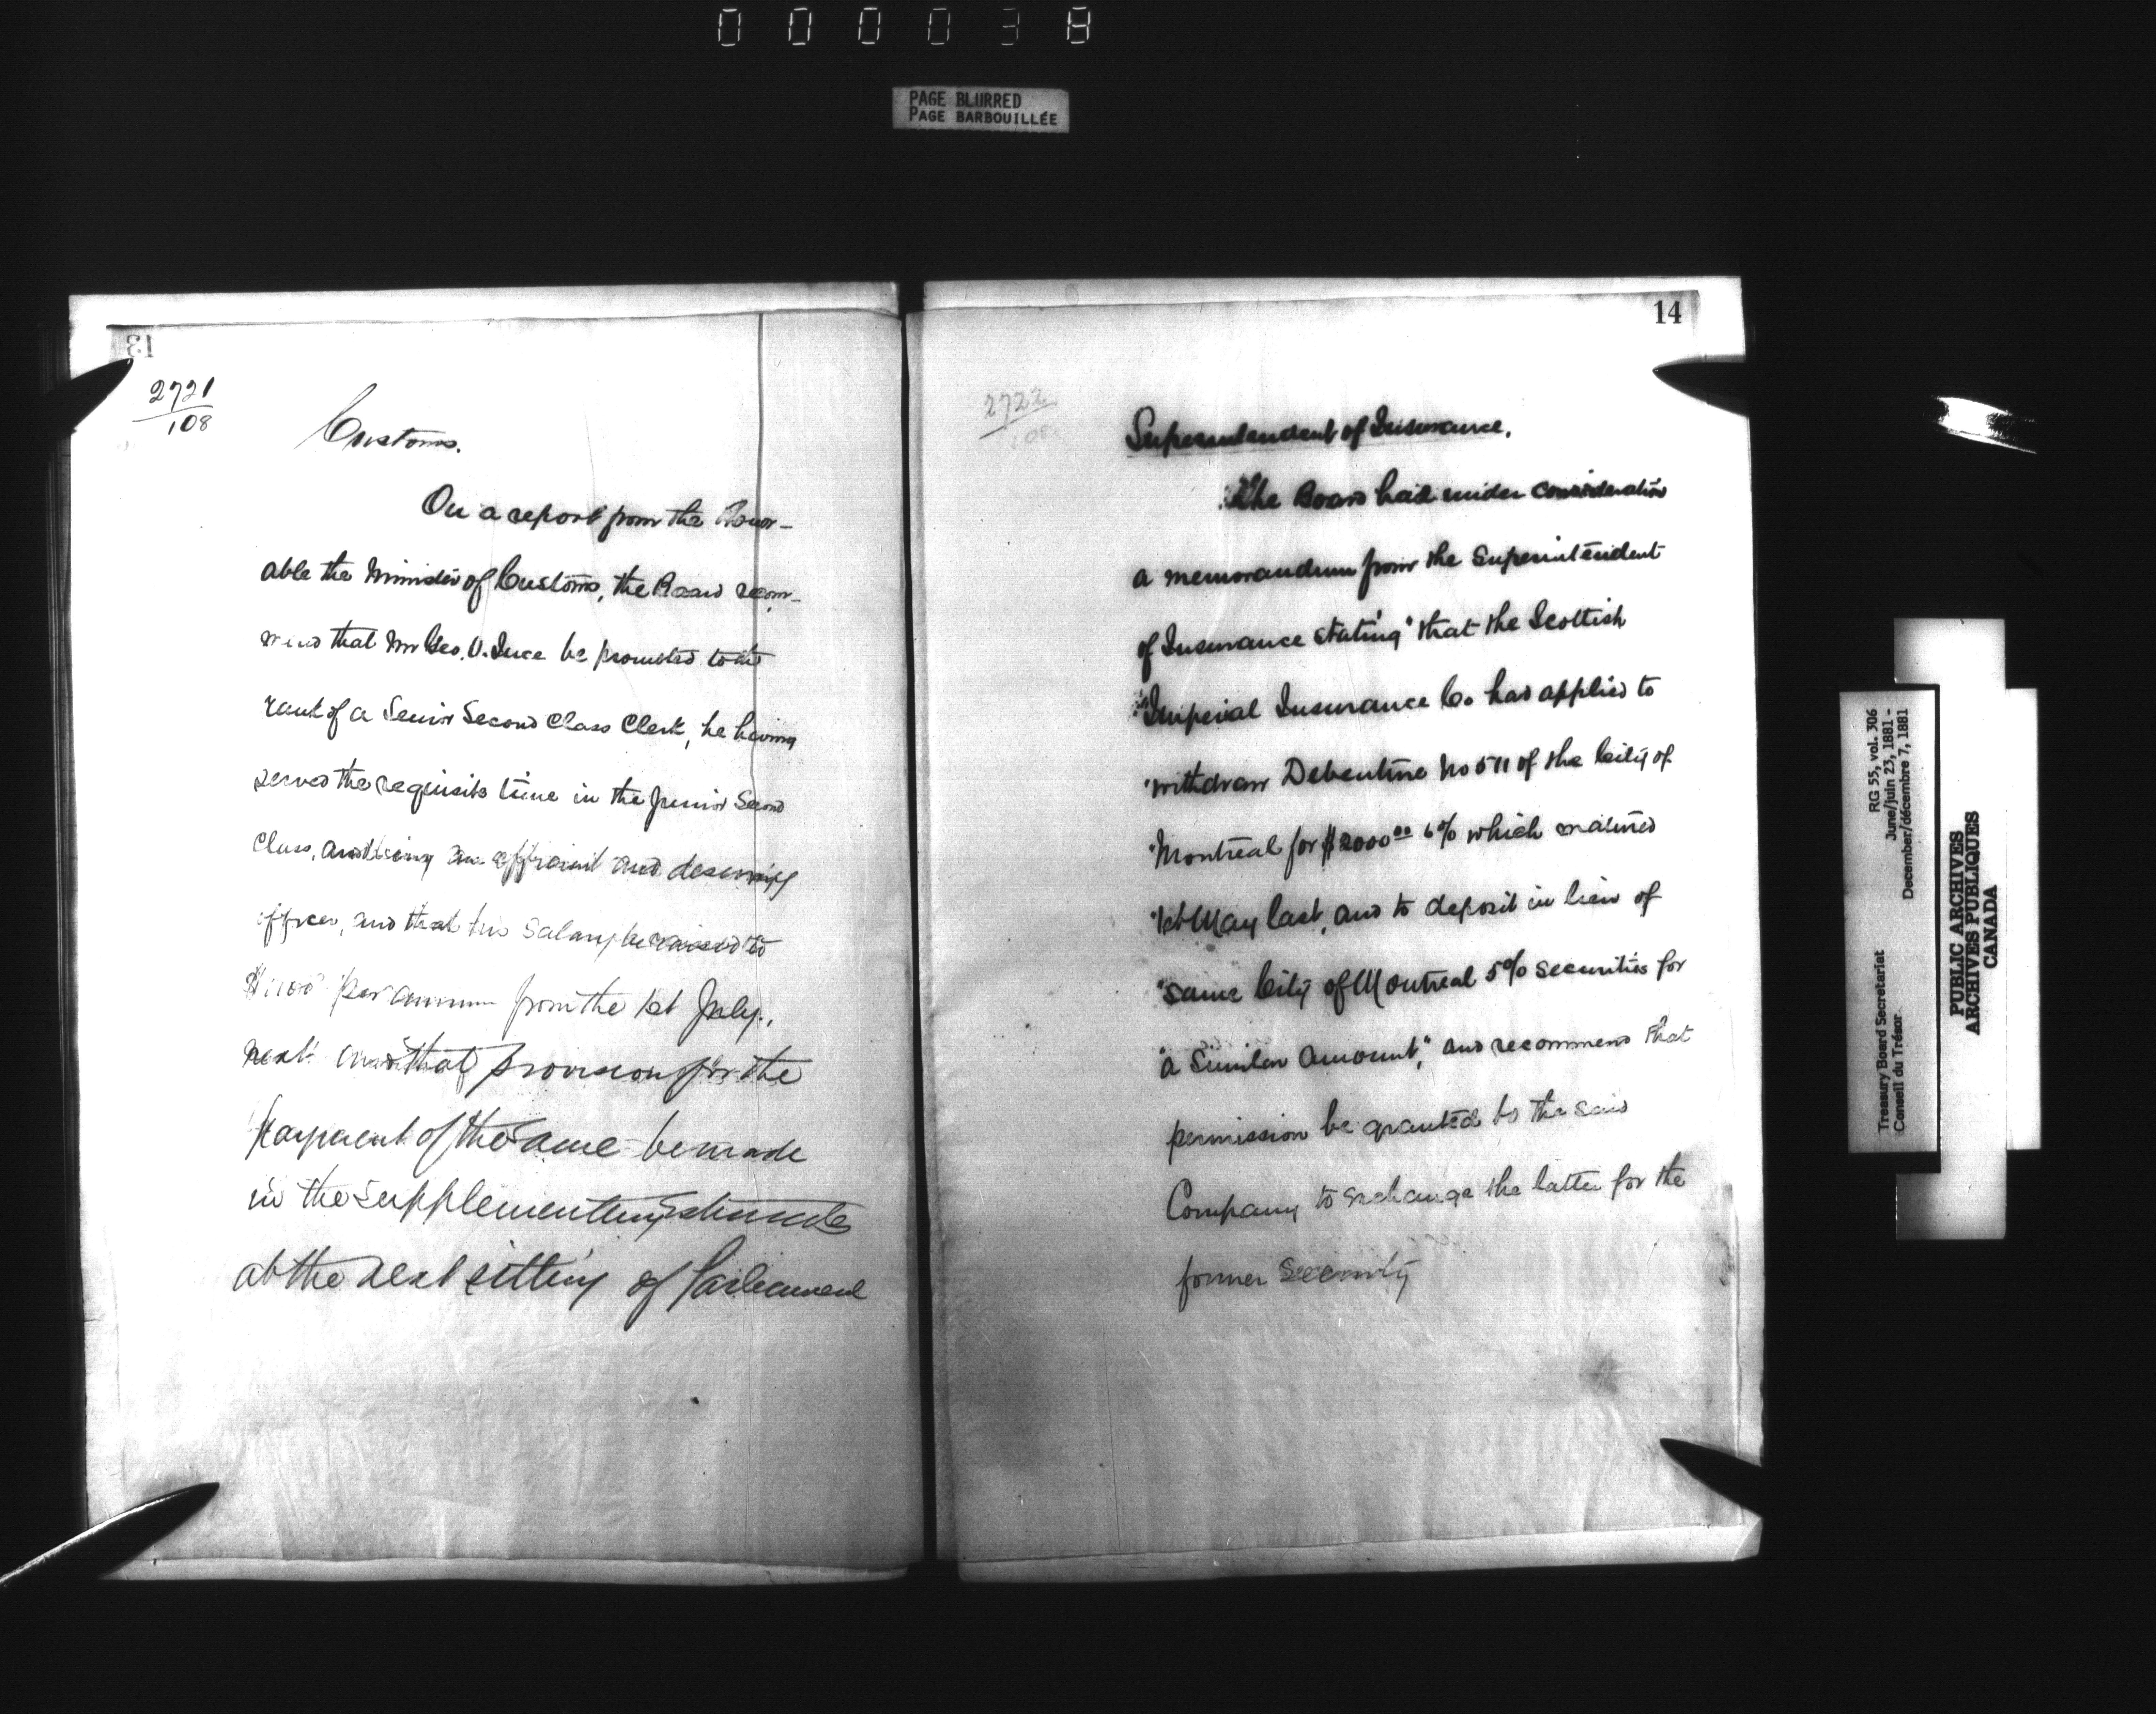 000038
PAGE BLURRED
PAGE BARBOUILLÉE
13
2721
108
Customs.
On a report from the Honor-
able the Minister of Customs, the Board recom-
mend that Mr Geo. V. Ince be promoted to the
rank of a Senior Second Class Clerk, he having
served the requisite time in the Junior Second
Class, and being an efficient and deserving
officer, and that his salary be raised to
$1100 per annum from the 1st July,
next and that provision for the
payment of the same be made
in the Supplementary Estimates
at the next sitting of Parliament
14
2722
108
Superintendent of Insurance.
The Board had under consideration
a memorandum from the Superintendent
of Insurance stating "that the Scottish
"Imperial Insurance Co has applied to
"withdraw Debenture No 511 of the City of
"Montreal for $2000.00 6% which matured
"1st May last, and to deposit in lieu of
"same City of Montreal 5% securities for
"a similar amount", and recommend that
permission be granted to the said
Company to exchange the latter for the
former Security
Treasury Board Secretariat
Conseil du Trésor
RG 55, vol. 306
June/juin 23, 1881 -
December/décembre 7, 1881
PUBLIC ARCHIVES
ARCHIVES PUBLIQUES
CANADA